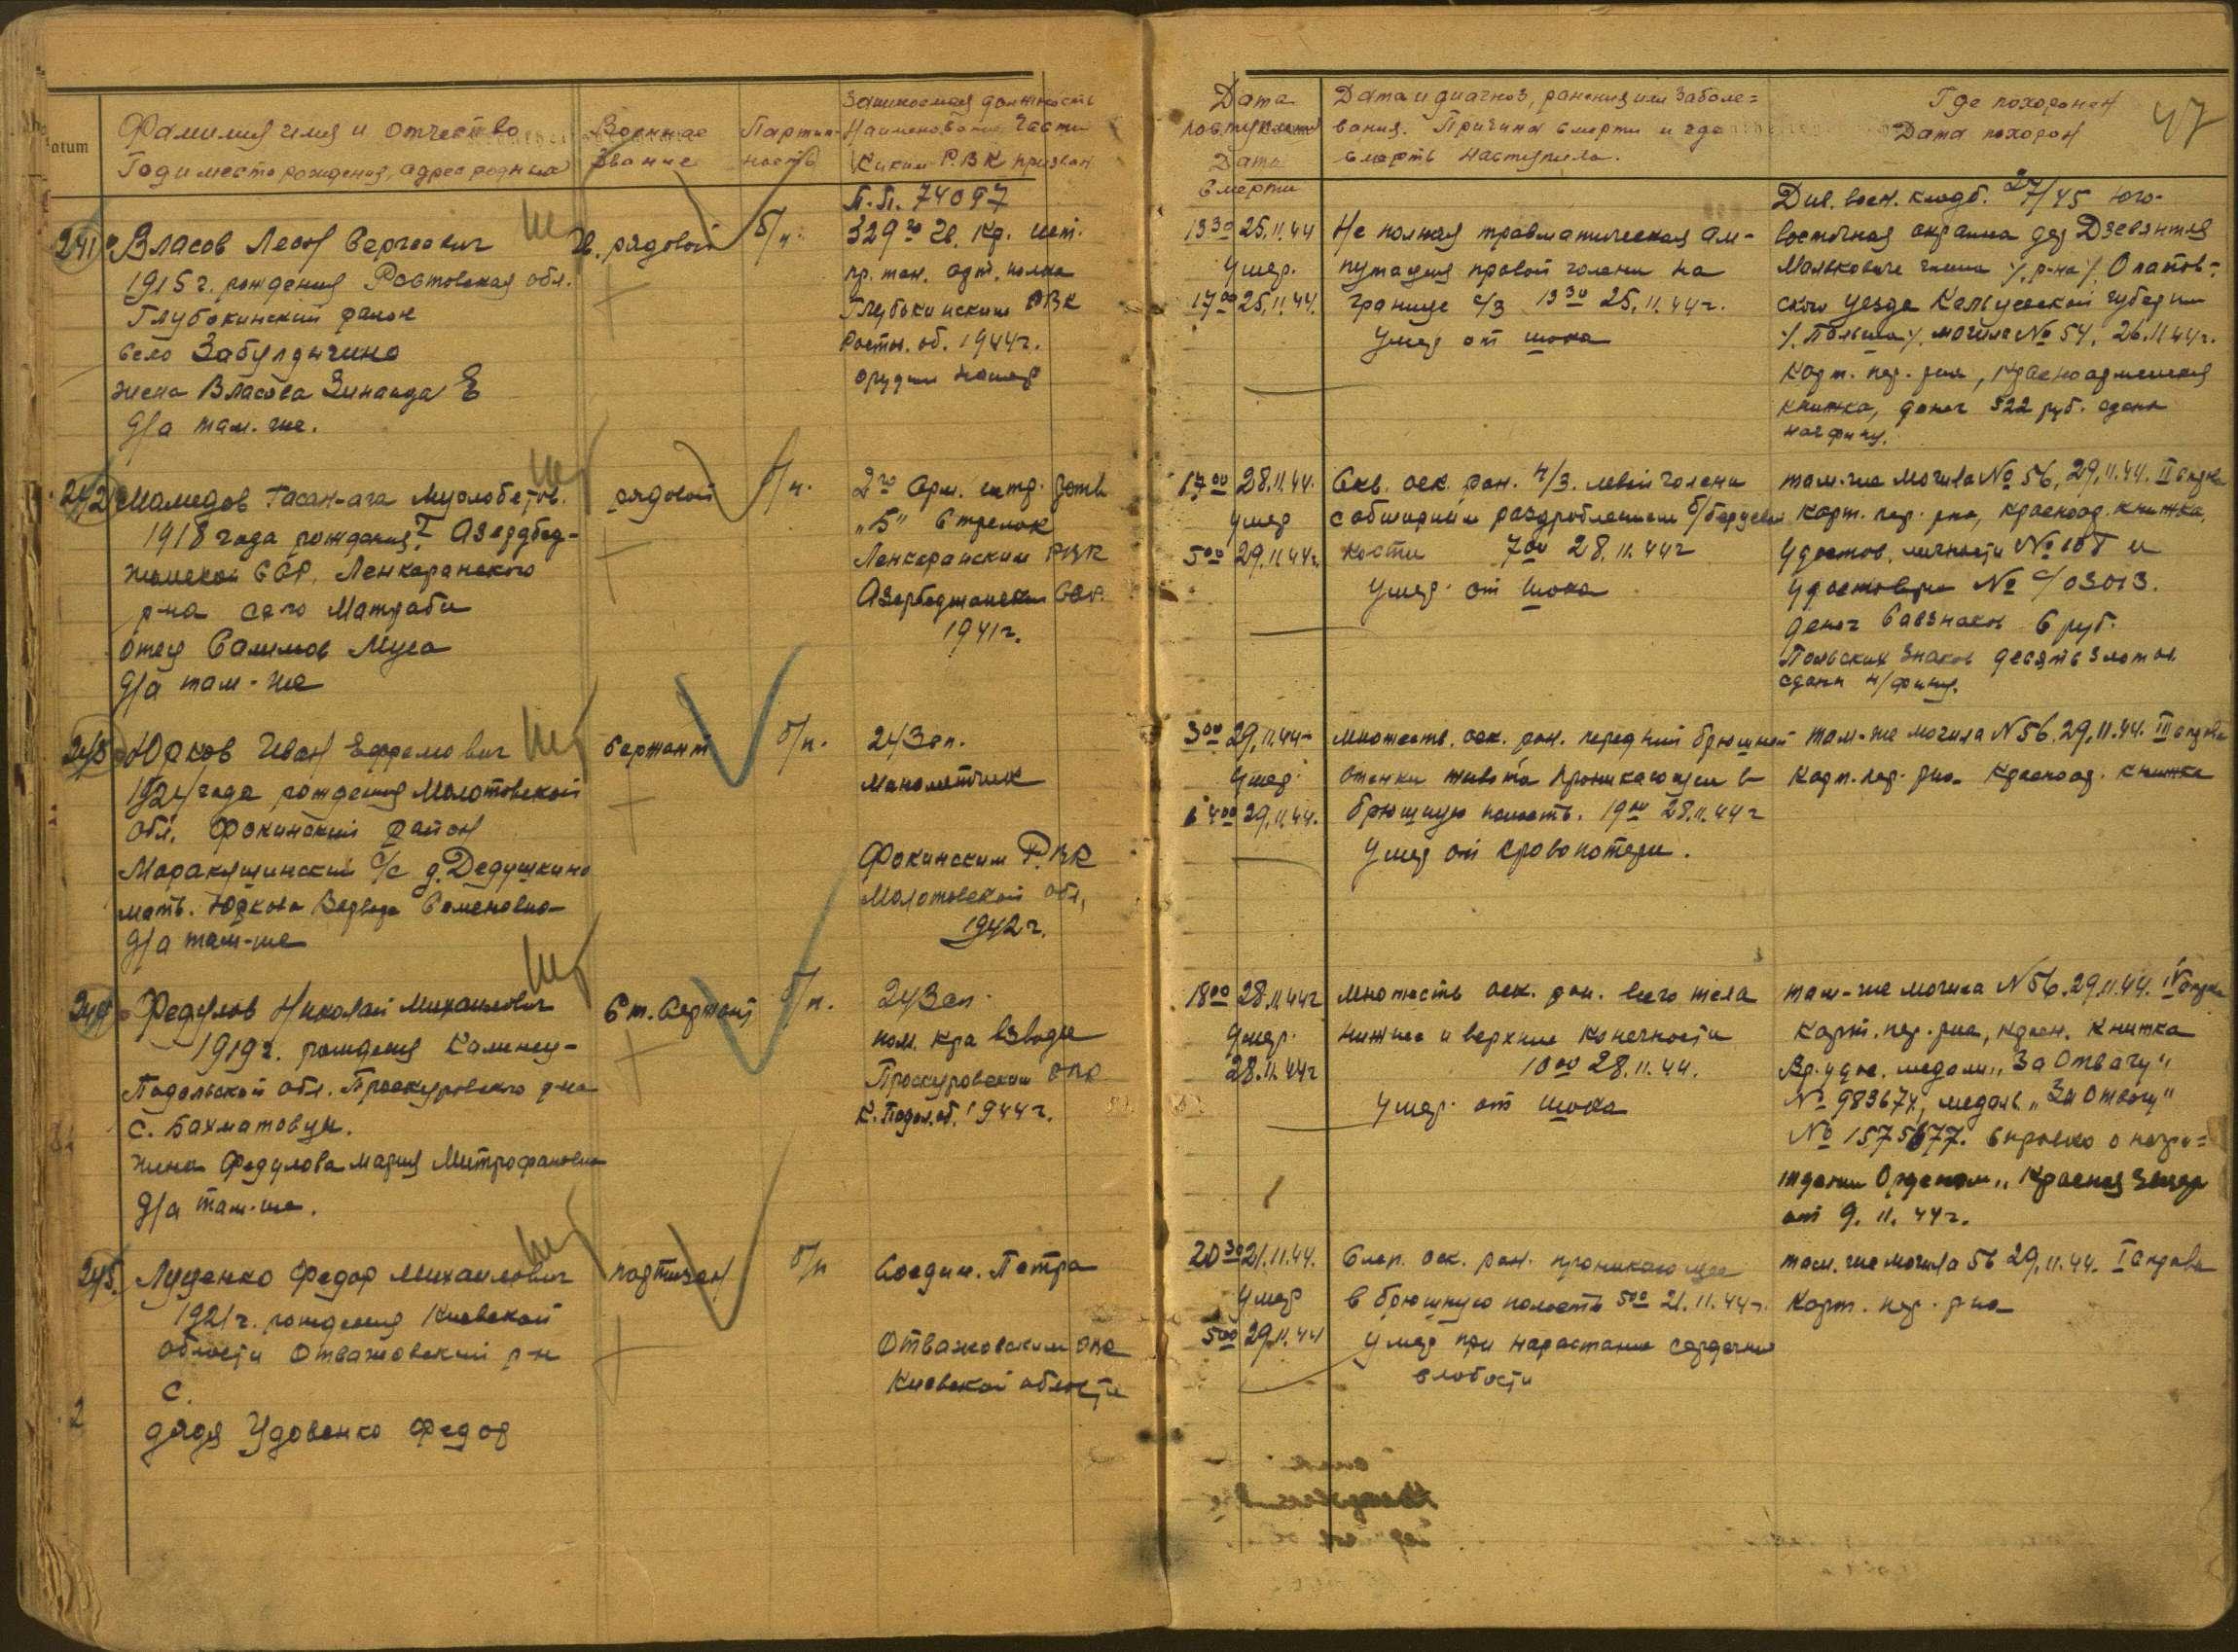 47
atum
Фамилия имя и отчество
Год и место рождения, адрес родных
Военное
звание
Партий-
ность
Занимаемая должность
Наименование части
Каким РВК призван
Дата
поступления
Дата
смерти
Дата и диагноз, ранения или заболе=
вания. Причина смерти и где
смерть наступила.
Где похоронен
Дата похорон
241
Власов Леон Сергеевич
1915 г. рождения Ростовская обл.
Глубокинский район
село
жена Власова Зинаида Е
д/а там-же.
Гв. рядовой
б/п.
П.П. 74097
329 го Гв. Кр. ист.
пр. тан. арт. полка
Глубокинским РВК
Ростов. об. 1944г.
13 30 25.11.44
умер.
17 00 25.11.44.
Не полная травматическая ам-
путация правой голени на
границе с/з 13 30 25.11.44г.
Умер от шока
Див. воен. кладб. 27/45 Юго-
восточная окраина дер Дзевентля
Мальковиче гмина /р-на/ Опатов-
ского уезда Кельцеской губернии
/.Польша/. могила № 54. 26.11.44г.
Карт. пер. рна, красноармейская
книжка, денег 522 руб. сдано
начфину.
242
Мамедов Гасан-ага
1918 года рождения Азердбед-
жанской ССР, Ленкаранского
р-на село Матраби
отец Салимов Муса
д/а там-же
рядовой
б/п.
2 го Арм. истр.ротв
"Б" Стрелок
Ленкаранским РВК
Азербеджанской ССР.
1941г.
17 00 28.11.44.
умер
5 00 29.11.44г.
Скв. оск. ран. н/з. левой голени
с обширным раздроблением б/берцовой
кости 7 00 28.11.44г
Умер от шока
там-же могила № 56, 29.11.44. II с края
Карт. пер. рна, красноар. книжка,
Удостов. личности № 108 и
удостовере № с/03013.
денег Савзнаков 6 руб.
Польских знаков десять злотых
сдано н/фину.
243
Юрков Иван Ефремович
1924 года рождения Молотовской
обл. Фокинский район
Маракушинский с/с д. Дедушкино
мать. Юркова Варвара Семеновна
д/а там-же
Сержант
б/п.
243 сп.
Манометчик
Фокинским РВК
Молотовской обл,
1942г.
3 00 29.11.44г
умер
4 00 29.11.44.
Множеств. оск. ран. передний брюшной
стенки живота проникающий в
брюшную полость. 19 00 28.11.44г
Умер от кровопотери.
Там-же могила N 56. 29.11.44. III с края
Карт. пер. рна Красноар. книжка
244
Федулов Николай Михаилович
1919г. рождения Каменец-
Подольской обл. Проскуровского р-на
с. Бахматовцы.
жена Федулова мария Митрофановна
д/а там-же.
Ст. Сержант
б/п.
243 сп.
пом. кра взвода
Проскуровским ОВК
К. Подол. об. 1944г.
18 00 28.11.44г
умер.
28.11.44г
множеств оск. ран. всего тела
нижние и верхние конечности
10 00 28.11.44.
Умер от шока
там-же могила N 56. 29.11.44. IV с края
Карт. пер. рна, красн. книжка
Вр. удос. медали "За Отвагу"
№ 983674, медаль "За Отвагу"
№ 1575677. справка о награ=
ждении Орденом "Красная Звезда
от 9.11.44г.
245.
Луценко Федор Михаилович
1921г. рождения Киевской
области Отважовский р-н
с.
дядя Удовенко Федор
партизан
б/п
Соедин. Петра
Отважовским ОВК
Киевской области
20 30 21.11.44.
умер
5 00 29.11.44
Слеп. оск. ран. проникающее
в брюшную полость 5 00 21.11.44г.
умер при нарастании сердечной
слабости
там-же могила 56 29.11.44. I с края
Карт. пер. рна
2